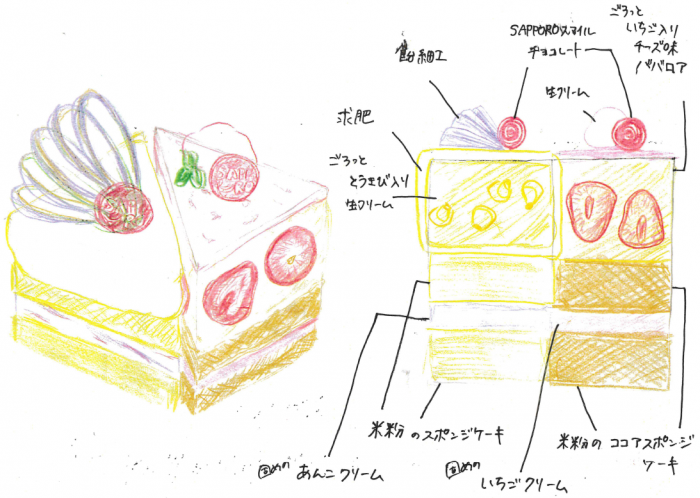 飴細工
SAPPOROスマイル
チョコレート
ごろっと
いちご入り
チーズ味
ババロア
生クリーム
求肥
ごろっと
とうきび入り
生クリーム
SAPPO
RO
米粉のスポンジケーキ
米粉の ココアスポンジ
ケーキ
固めの あんこクリーム
固めの
いちごクリーム